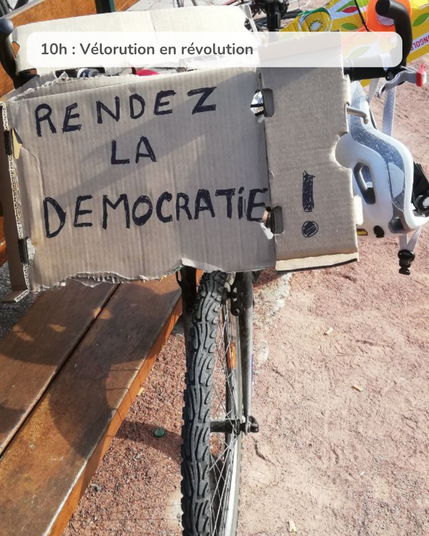 10h : Vélorution en révolution
RENDEZ
LA
DEMOCRATiE !